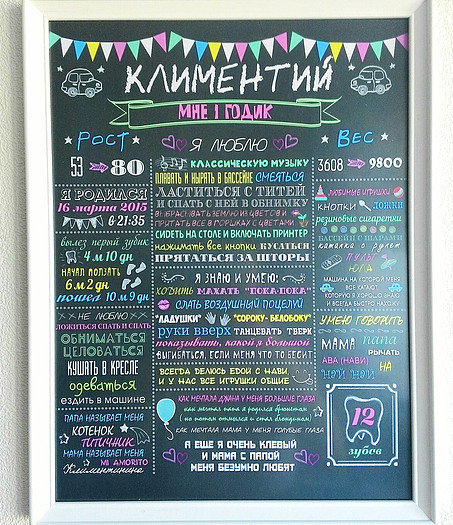 КЛИМЕНТИЙ
МНЕ 1 ГОДИК
РОСТ
53 80
Я РОДИЛСЯ
16 марта 2015
в 21:35
вылез первый зубик
4 м 10 дн
НАЧАЛ ПОЛЗАТЬ
6 м 2 дн
пошел 10 м 9 дн
НЕ ЛЮБЛЮ
ЛОЖИТЬСЯ СПАТЬ И СПАТЬ
ОБНИМАТЬСЯ
ЦЕЛОВАТЬСЯ
КУШАТЬ В КРЕСЛЕ
одеваться
ездить в машине
ПАПА НАЗЫВАЕТ МЕНЯ
КОТЕНОК
ПТИЧНИК
МАМА НАЗЫВАЕТ МЕНЯ
MI AMORITO
Климентинина
Я ЛЮБЛЮ
КЛАССИЧЕСКУЮ МУЗЫКУ
ПЛАВАТЬ И НЫРЯТЬ В БАССЕЙНЕ СМЕЯТЬСЯ
ЛАСТИТЬСЯ С ТИТЕЙ
И СПАТЬ С НЕЙ В ОБНИМКУ
ВЫБРАСЫВАТЬ ЗЕМЛЮ ИЗ ЦВЕТОВ И
ПРЯТАТЬ ВСЕ В ГОРШКАХ С ЦВЕТАМИ
СИДЕТЬ НА СТОЛЕ И ВКЛЮЧАТЬ ПРИНТЕР
нажимать все кнопки КУСАТЬСЯ
ПРЯТАТЬСЯ ЗА ШТОРЫ
Я ЗНАЮ И УМЕЮ:
ходить МАХАТЬ "ПОКА-ПОКА"
СЛАТЬ ВОЗДУШНЫЙ ПОЦЕЛУЙ
"ЛАДУШКИ" "СОРОКУ- БЕЛОБОКУ"
руки вверх ТАНЦЕВАТЬ ТВЕРК
показывать, какой я большой
ВЫГИБАТЬСЯ, ЕСЛИ МЕНЯ ЧТО ТО БЕСИТ
ВСЕГДА ДЕЛЮСЬ ЕДОЙ С НАВИ
И У НАС ВСЕ ИГРУШКИ ОБЩИЕ
КАК МЕЧТАЛА ДЖАНА У МЕНЯ БОЛЬШИЕ ГЛАЗА
как мечтал папа я родился брюнетом
но потом ответил и стал блондином!
КАК МЕЧТАЛА МАМА У МЕНЯ ГОЛУБЫЕ ГЛАЗА
А ЕЩЕ Я ОЧЕНЬ КЛЕВЫЙ
И МАМА С ПАПОЙ
МЕНЯ БЕЗУМНО ЛЮБЯТ
ВЕС
3608 9800
ЛЮБИМЫЕ ИГРУШКИ
КНОПКИ ЛОЖКИ
резиновые сигаретки
БАССЕЙН С ШАРАМИ
каталка с рулем
ПУЛЬТ
ЮЛА
МАШИНА НА КОТОРОЙ МЕНЯ
ВСЕ КАТАЮТ
КОТОРУЮ Я ХОРОШО ЗНАЮ
И ВСЕГДА БЫСТРО НАХОЖУ
УМЕЮ ГОВОРИТЬ
МАМА папа
РЫЧАТЬ
АВА (НАВИ) НА
НЯЙ НЯЙ
12
зубов